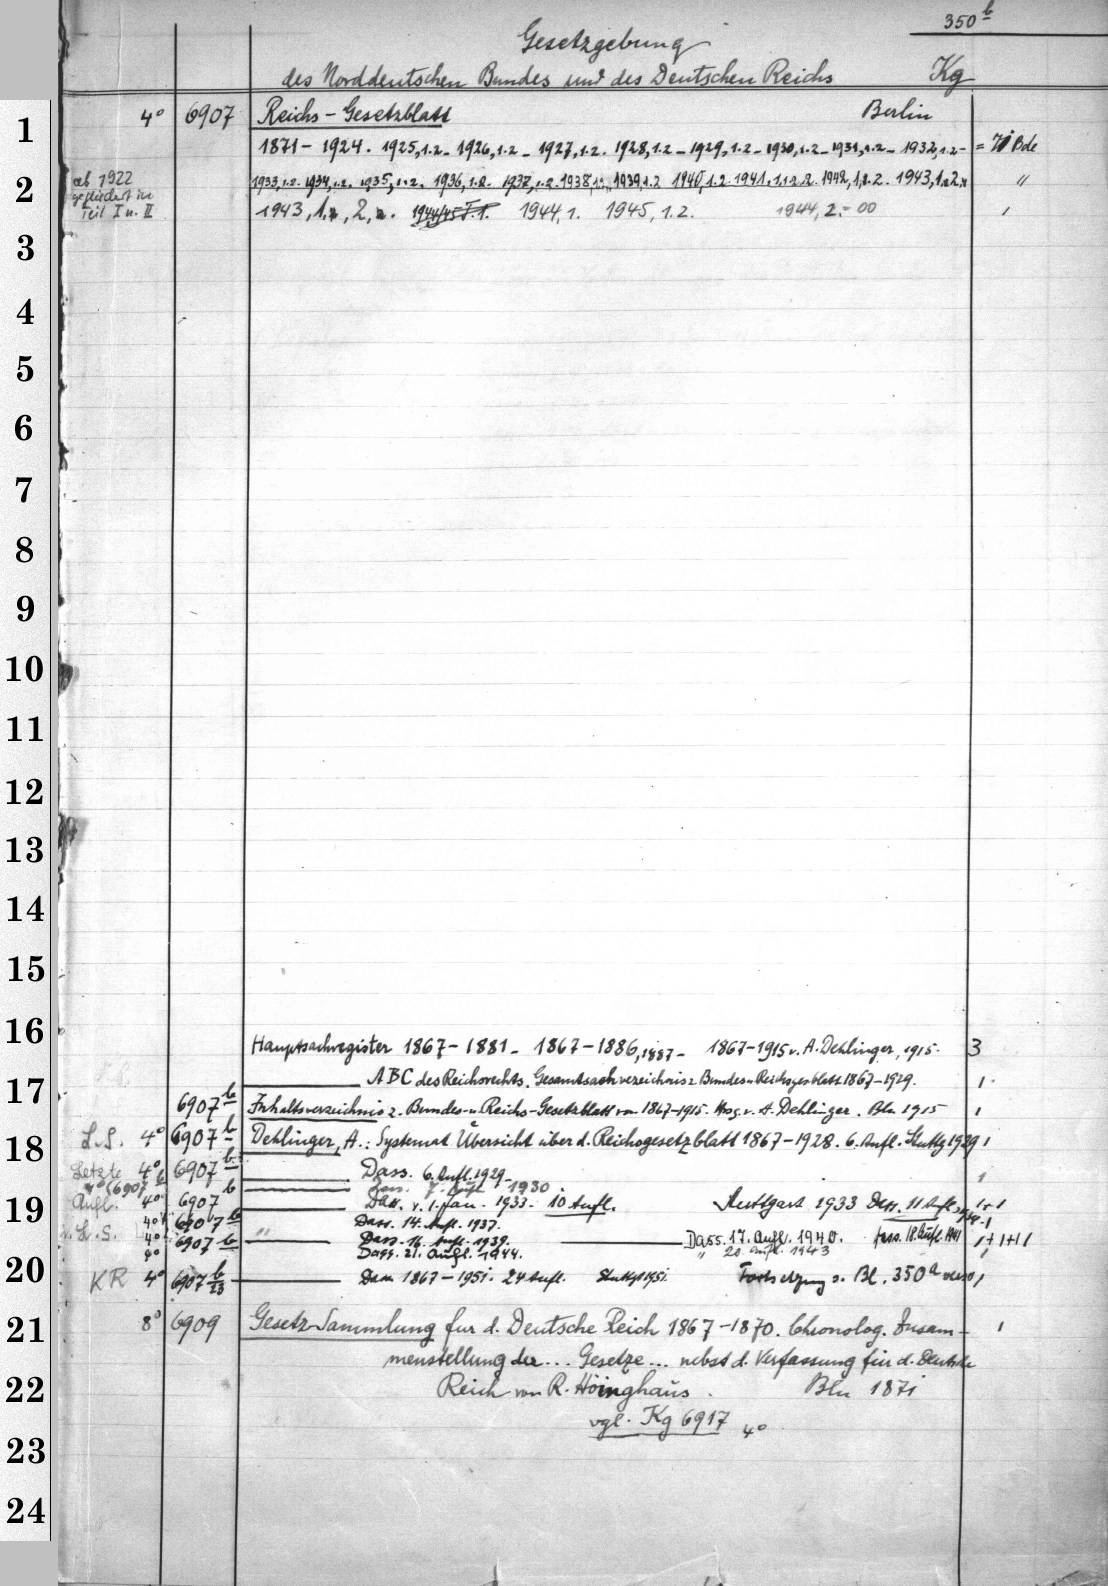 350 b
Gesetzgebung
des Norddeutschen Bundes und des Deutschen Reichs Kg
1 4° 6907 Reichs-Gesetzblatt Berlin
1871-1924. 1925,1.2 - 1926,1.2 - 1927,1.2. 1928,1.2 - 1929,1.2 - 1930,1.2 - 1931,1.2 - 1932,1.2 - = Bde
2 ab 1922 1933,1.2. 1934,1.2. 1935,1.2. 1936,1.2. 1937,1.2. 1938 1939,1.2 1940,1.2. 1941. 1942, 1943, "
gegliedert in
Teil I u. II 1943, 1., 2, 1944/45 I.1. 1944,1. 1945,1.2. 1944,2.-00
3
4
5
6
7
8
9
10
11
12
13
14
15
16
Hauptsachregister 1867-1881 - 1867-1886, 1887 - 1867-1915 v. A. Dehlinger, 1915. 3
17 ABC des Reichsrechts. Gesamtsachverzeichnis z. Bundes- u. Reichsgesetzblatt 1867-1929. 1
6907 b Inhaltsverzeichnis z. Bundes- u. Reichs-Gesetzblatt von 1867-1915. Hrsg. v. A. Dehlinger. Bln 1915 1
18 L.S. 4° 6907 b Dehlinger, A.: Systemat Übersicht über d. Reichsgesetzblatt 1867-1928. 6. Aufl. Stuttg 1929 1
Letzte 4° 6907 b Dass. 6. Aufl. 1929. 1
(6907 b Dass. 7. Aufl 1930
19 Aufl. 4° 6907 b Dass. v. 1. Jan. 1933. 10 Aufl. Stuttgart 1933 Dass. 11 Aufl. 1+1
4° 6907 b Dass. 14. Aufl. 1937.
L.S. 4° 6907 b " Dass. 16. Aufl. 1939. Dass. 17. Aufl. 1940. Dass. 18. Aufl. 1941 1+1+1
4° Dass. 21. Aufl. 1944. " 20. Aufl. 1943
20 KR 4° 6907 b/23 Dass 1867-1951. 24 Aufl. Stuttgt 1951. Fortsetzung s. Bl. 350a verso 1
21 8° 6909 Gesetz-Sammlung für d. Deutsche Reich 1867-1870. Chronolog. Zusam- 1
menstellung der ... Gesetze ... nebst d. Verfassung für d. Deutsche
22 Reich von R. Höinghaus. Bln 1871
vgl. Kg 6917 4°
23
24